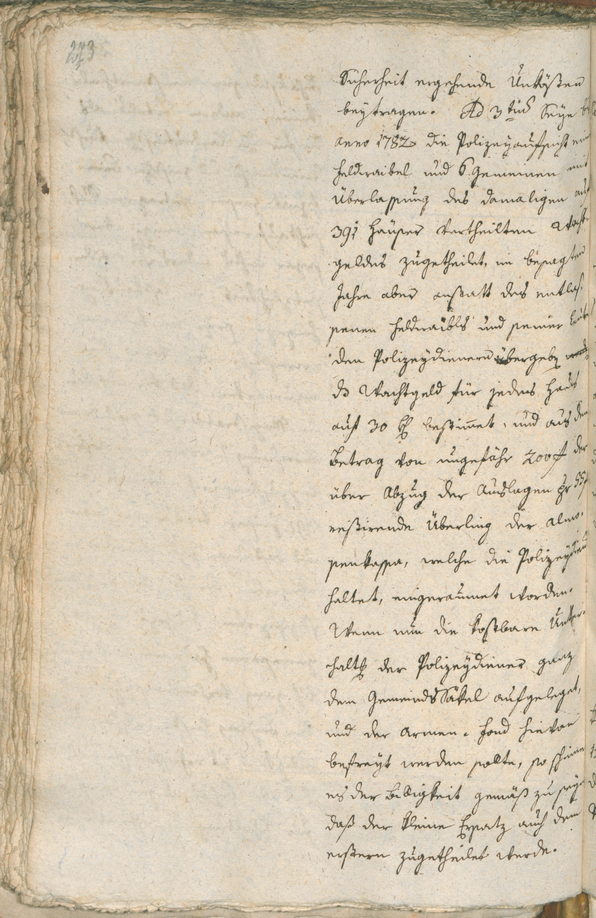 273
Sicherheit ergehende Unkösten
beytragen. Ad 3tium Seye bis
anno 1782 die Polizeyaufsicht einem
Feldwaibel und 6. Gemeinen mit
Überlassung des damaligen auf
391 Häuser vertheilten Wacht-
geldes zugetheilet, in besagtem
Jahre aber anstatt des entlas-
senen Feldwaibls und seiner Leute
den Polizeydienern übergeben worden
das Wachtgeld für jedes Haus
auf 30 bestimmet, und aus dem
Betrag von ungefähr 200 f der
über Abzug der Auslagen pr 55 f
restirende Überling der Almo-
senkassa, welche die Polizeydiener
haltet, eingeraumet worden.
Wenn nun die kostbare Unter-
haltung der Polizeydiener ganz
dem Gemeinds Säkel aufgeleget,
und der Armen-Fond hievon
befreyt werden sollte, so scheine
es der Billigkeit gemäß zu seyn
daß der kleine Ersatz auch dem
erstern zugetheilet werde.